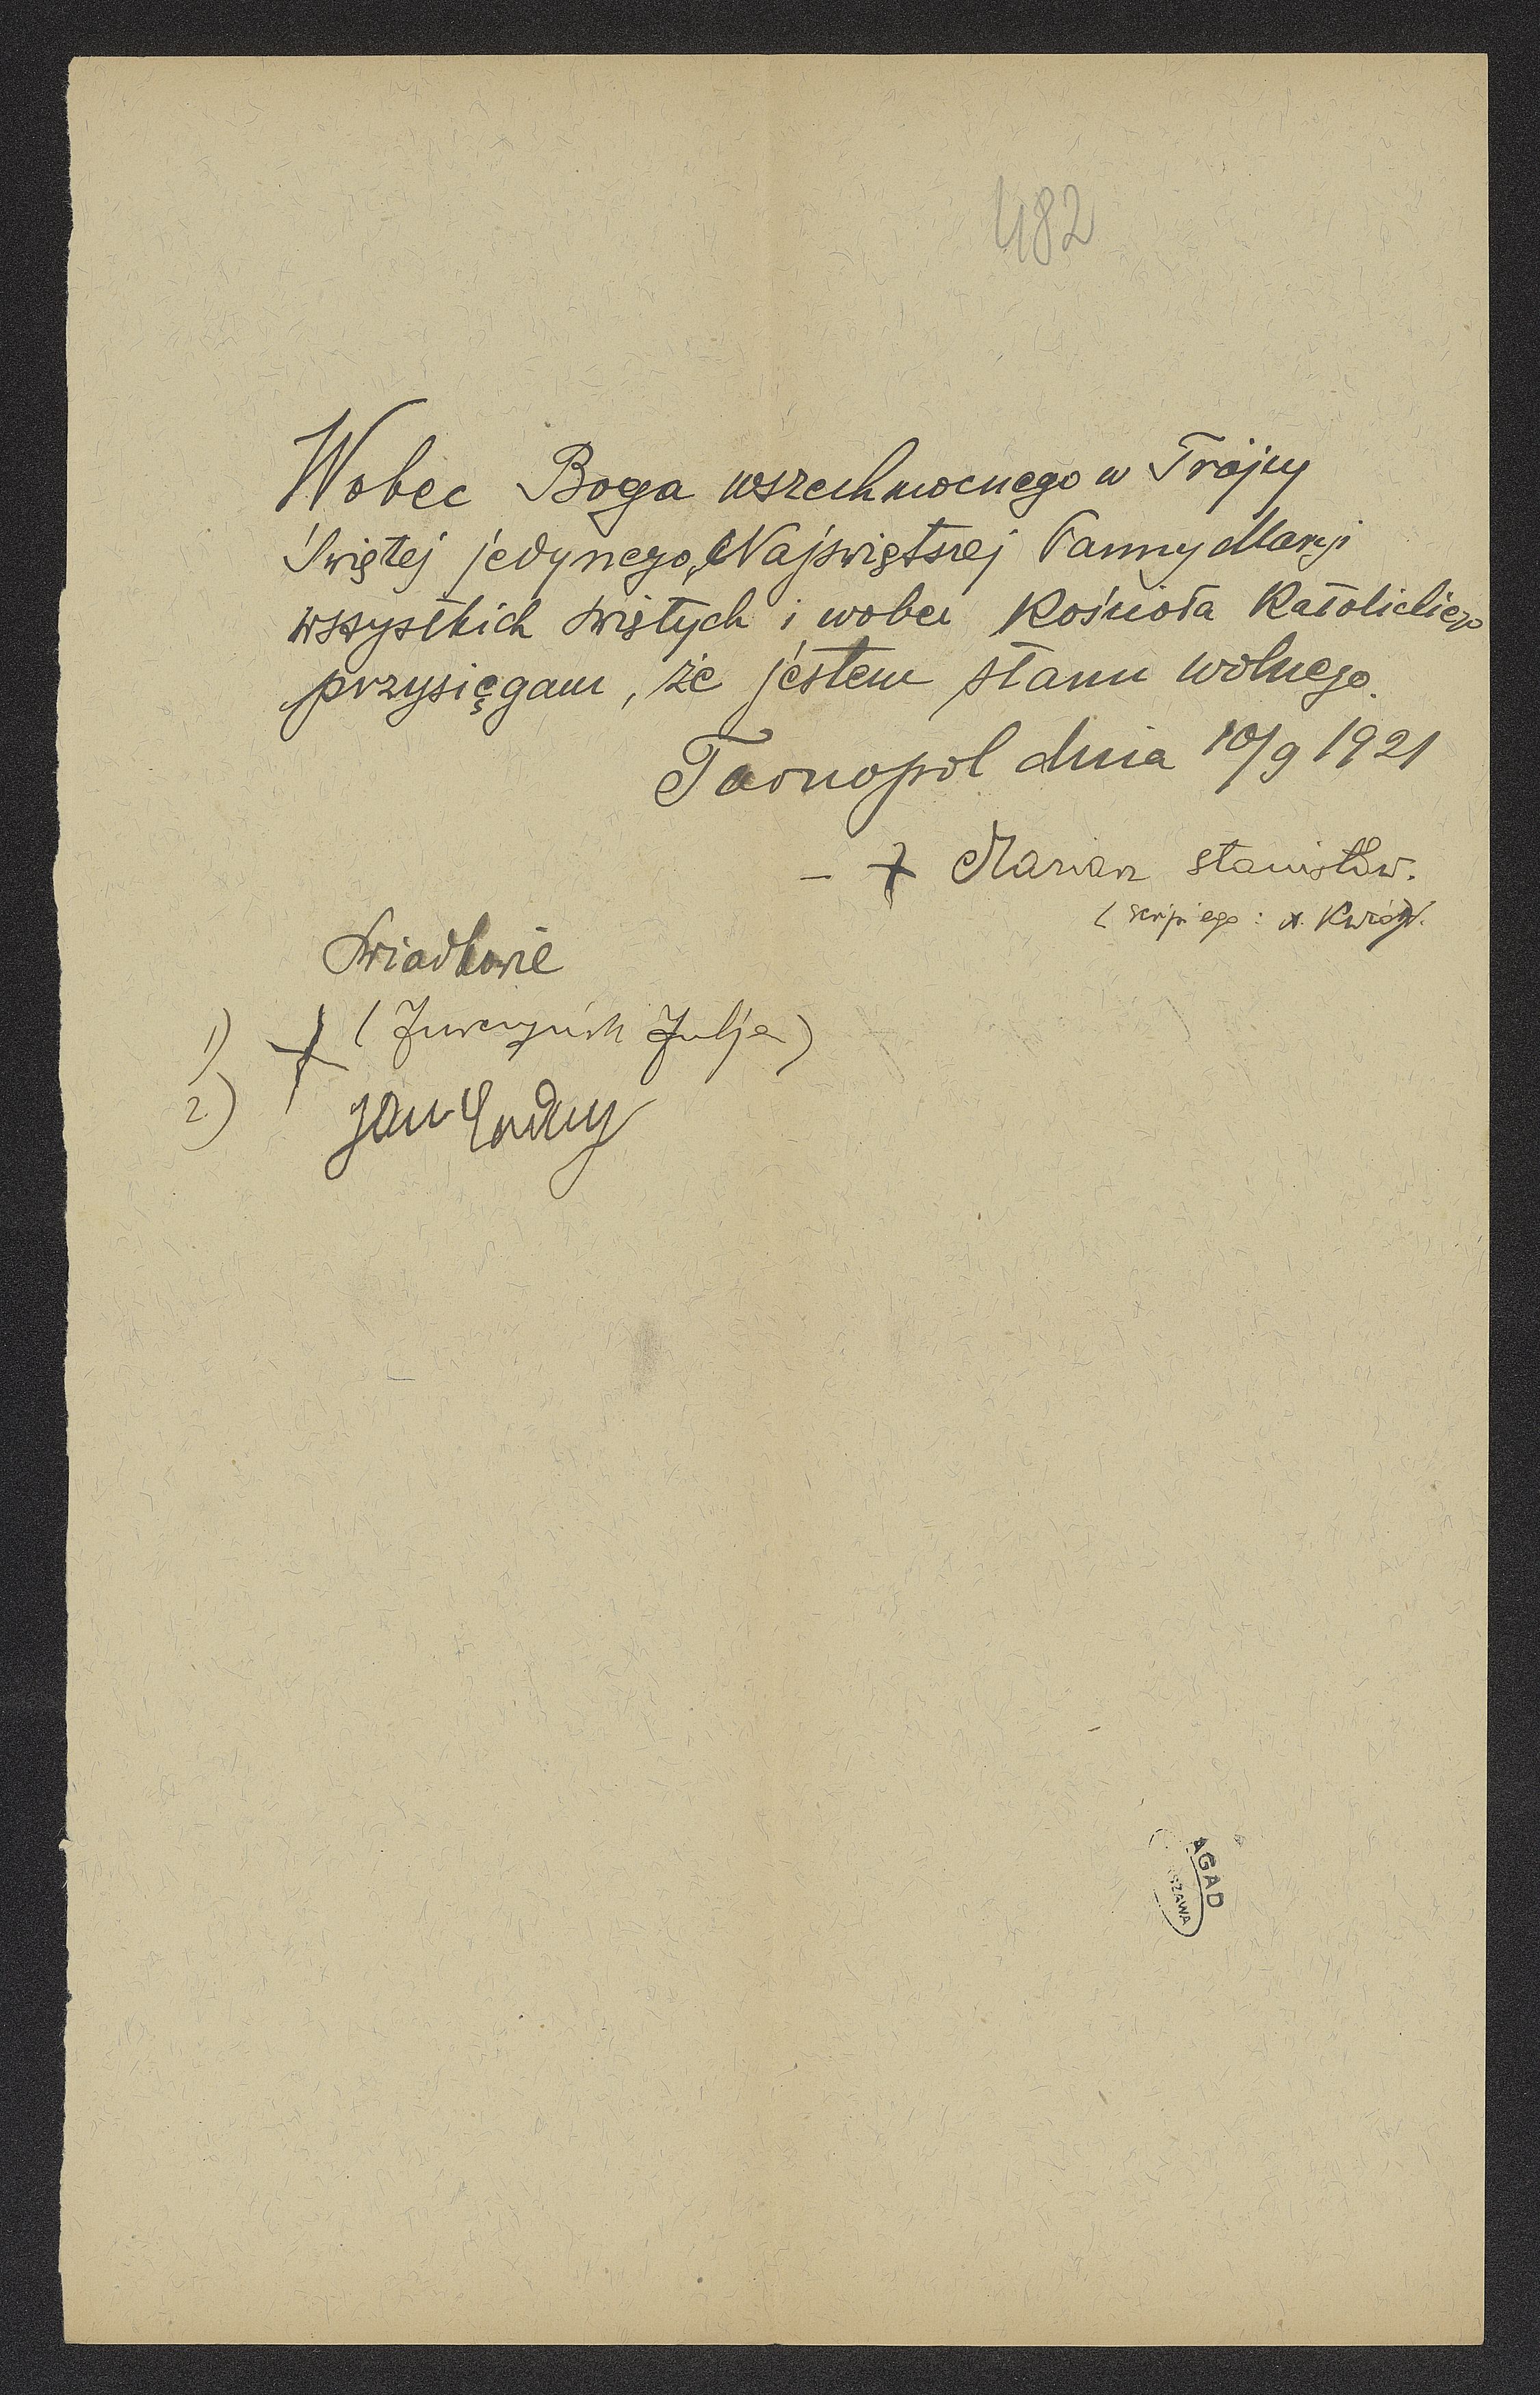 482
Wobec Boga wszechmocnego w Trójcy
Świętej jedynego, Najświętszej Panny Maryi
wszystkich świętych i wobec Kościoła Katolickiego
przysięgam, że jestem stanu wolnego.
Tarnopol dnia 10/9 1921
– + Marian Stanisław.
Świadkowie
1) + ( Julja )
2) Jan
AGAD
SZAWA